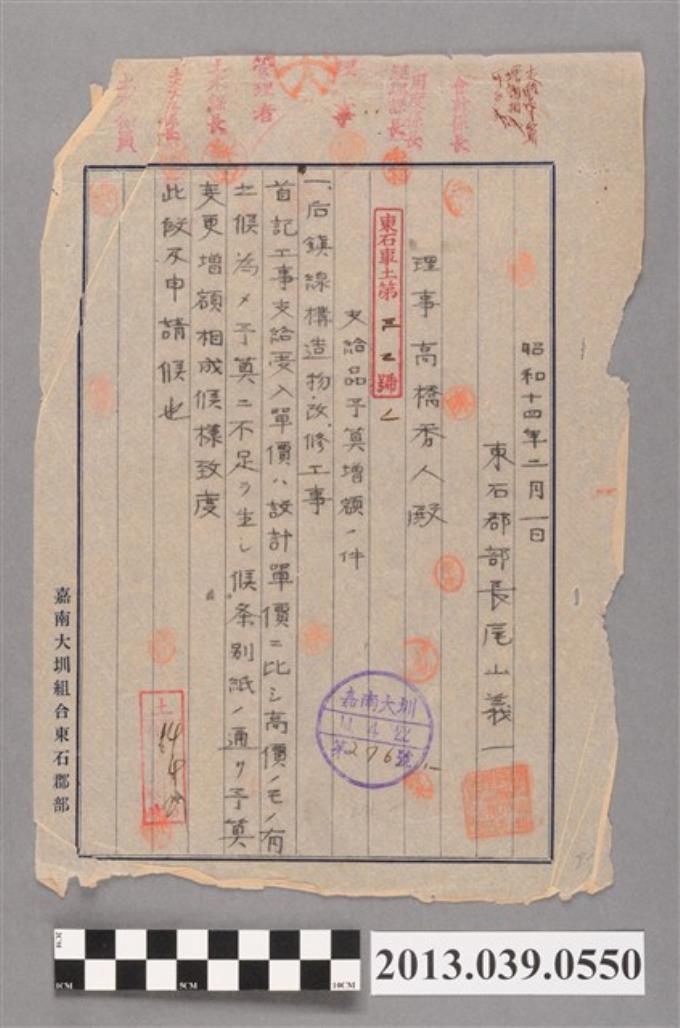 会計係長
用度係長
経理課長
理事
管理者
土木課長
昭和十四年二月一日
東石郡部長尾山義一
理事高橋秀人殿
東石軍土第 三乙號
支給品予算増額ノ件
一、后鎮線構造物改修工事
首記工事支給受入單價ハ設計單價ニ比シ高價ノモノ有
之候為メ予算ニ不足ヲ生シ候条別紙ノ通リ予算
変更増額相成候様致度
此段及申請候也
嘉南大圳
14.4.22
第276號
土
14 4
嘉南大圳組合東石郡部
1CM
5CM
10CM
2CM
2013.039.0550